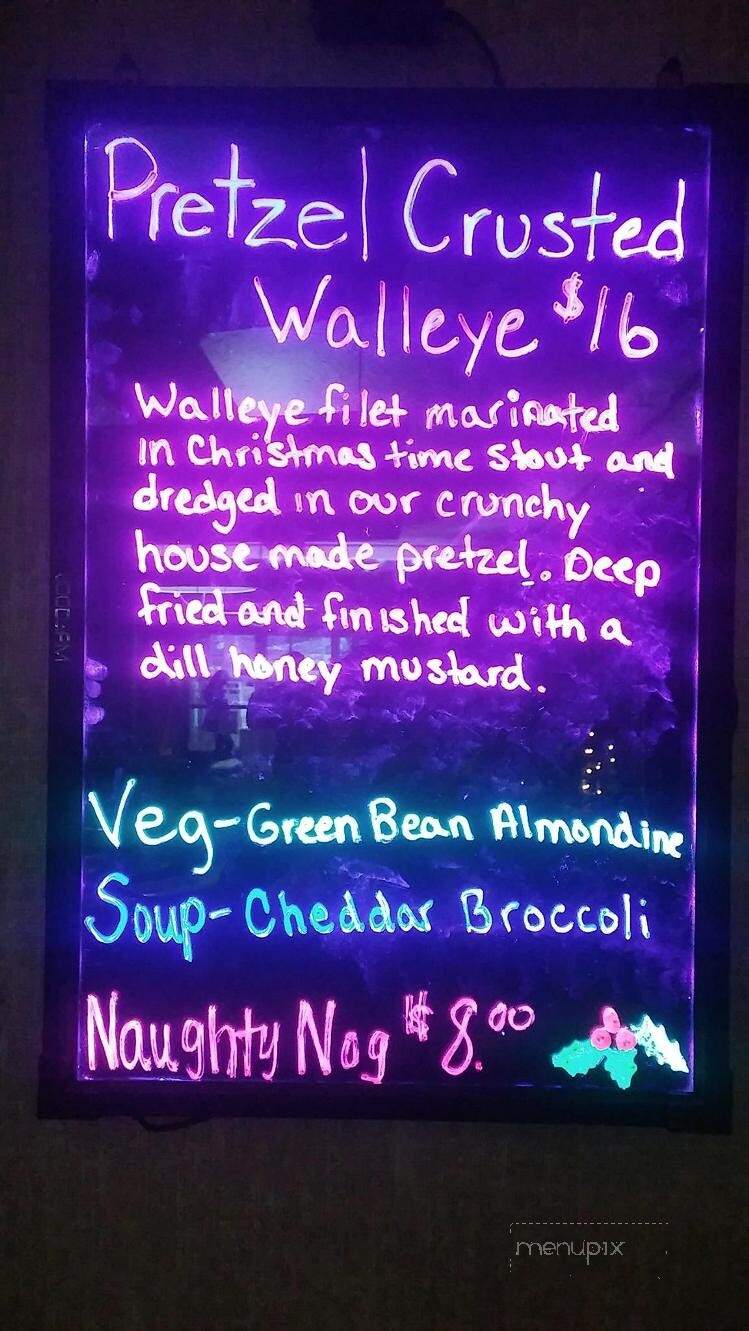 Pretzel Crusted
Walleye $16
Walleye filet marinated
in Christmas time stout and
dredged in our crunchy
house made pretzel. Deep
fried and finished with a
dill honey mustard.
Veg-Green Bean Almondine
Soup-Cheddar Broccoli
Naughty Nog $8.00
menupix